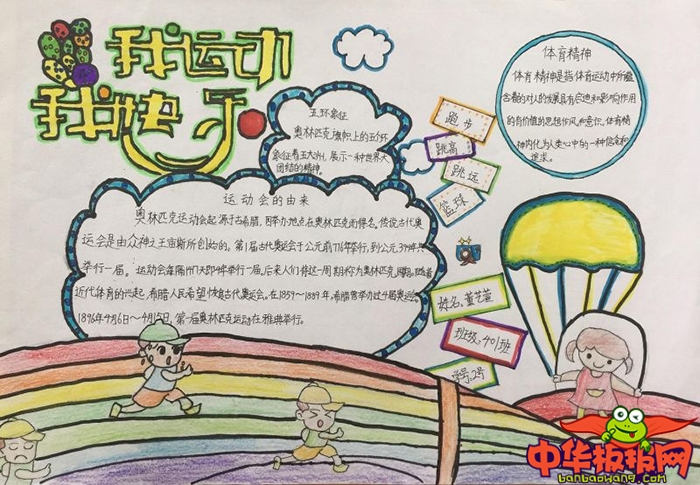 我运动
我快乐
五环象征
奥林匹克旗帜上的五个环
象征着五大洲，展示一种世界大
团结的精神。
跑步
跳高
跳远
篮球
体育精神
体育精神是指体育运动中所蕴
含着的对人的发展具有启迪和影响作用
的有价值的思想作风和意识。体育精
神内化为人类心中的一种信念和
追求。
运动会的由来
奥林匹克运动会起源于古希腊，因举办地点在奥林匹克而得名。传说古代奥
运会是由众神之王宙斯所创始的，第1届古代奥运会于公元前776年举行，到公元394年共
举行一届。运动会每隔1417天即4年举行一届，后来人们将这一周期称为奥林匹克周期。随着
近代体育的兴起，希腊人民希望恢复古代奥运会。在1859～1889年，希腊曾举办过4届奥运会。
1896年4月6日～4月15日，第一届奥林匹克运动在雅典举行。
姓名：董艺萱
班级：401班
学号：2号
中华板报网
banbaowang.com